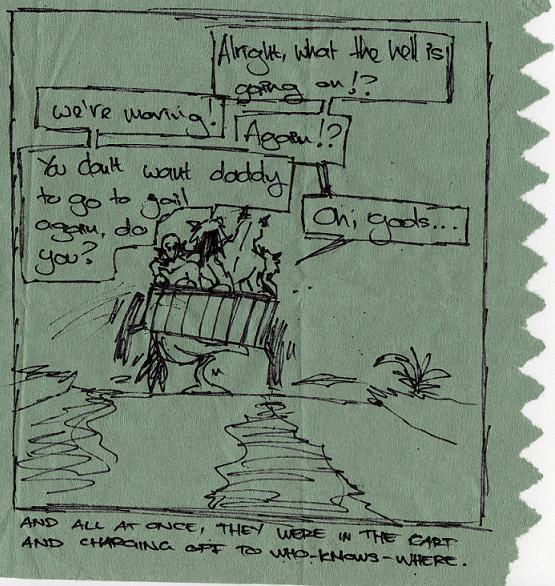 Alright, what the hell is
going on!?
we're moving!
Again!?
You don't want daddy
to go to jail
again, do
you?
Oh, gods...
AND ALL AT ONCE, THEY WERE IN THE CART
AND CHARGING OFF TO WHO-KNOWS-WHERE.